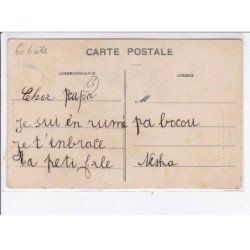 bobêche
CARTE POSTALE
CORRESPONDANCE
ADRESSE
65
Cher Papa
M
je sui én rumé pa bocou
je t'enbrace
ta peti file
Nésha